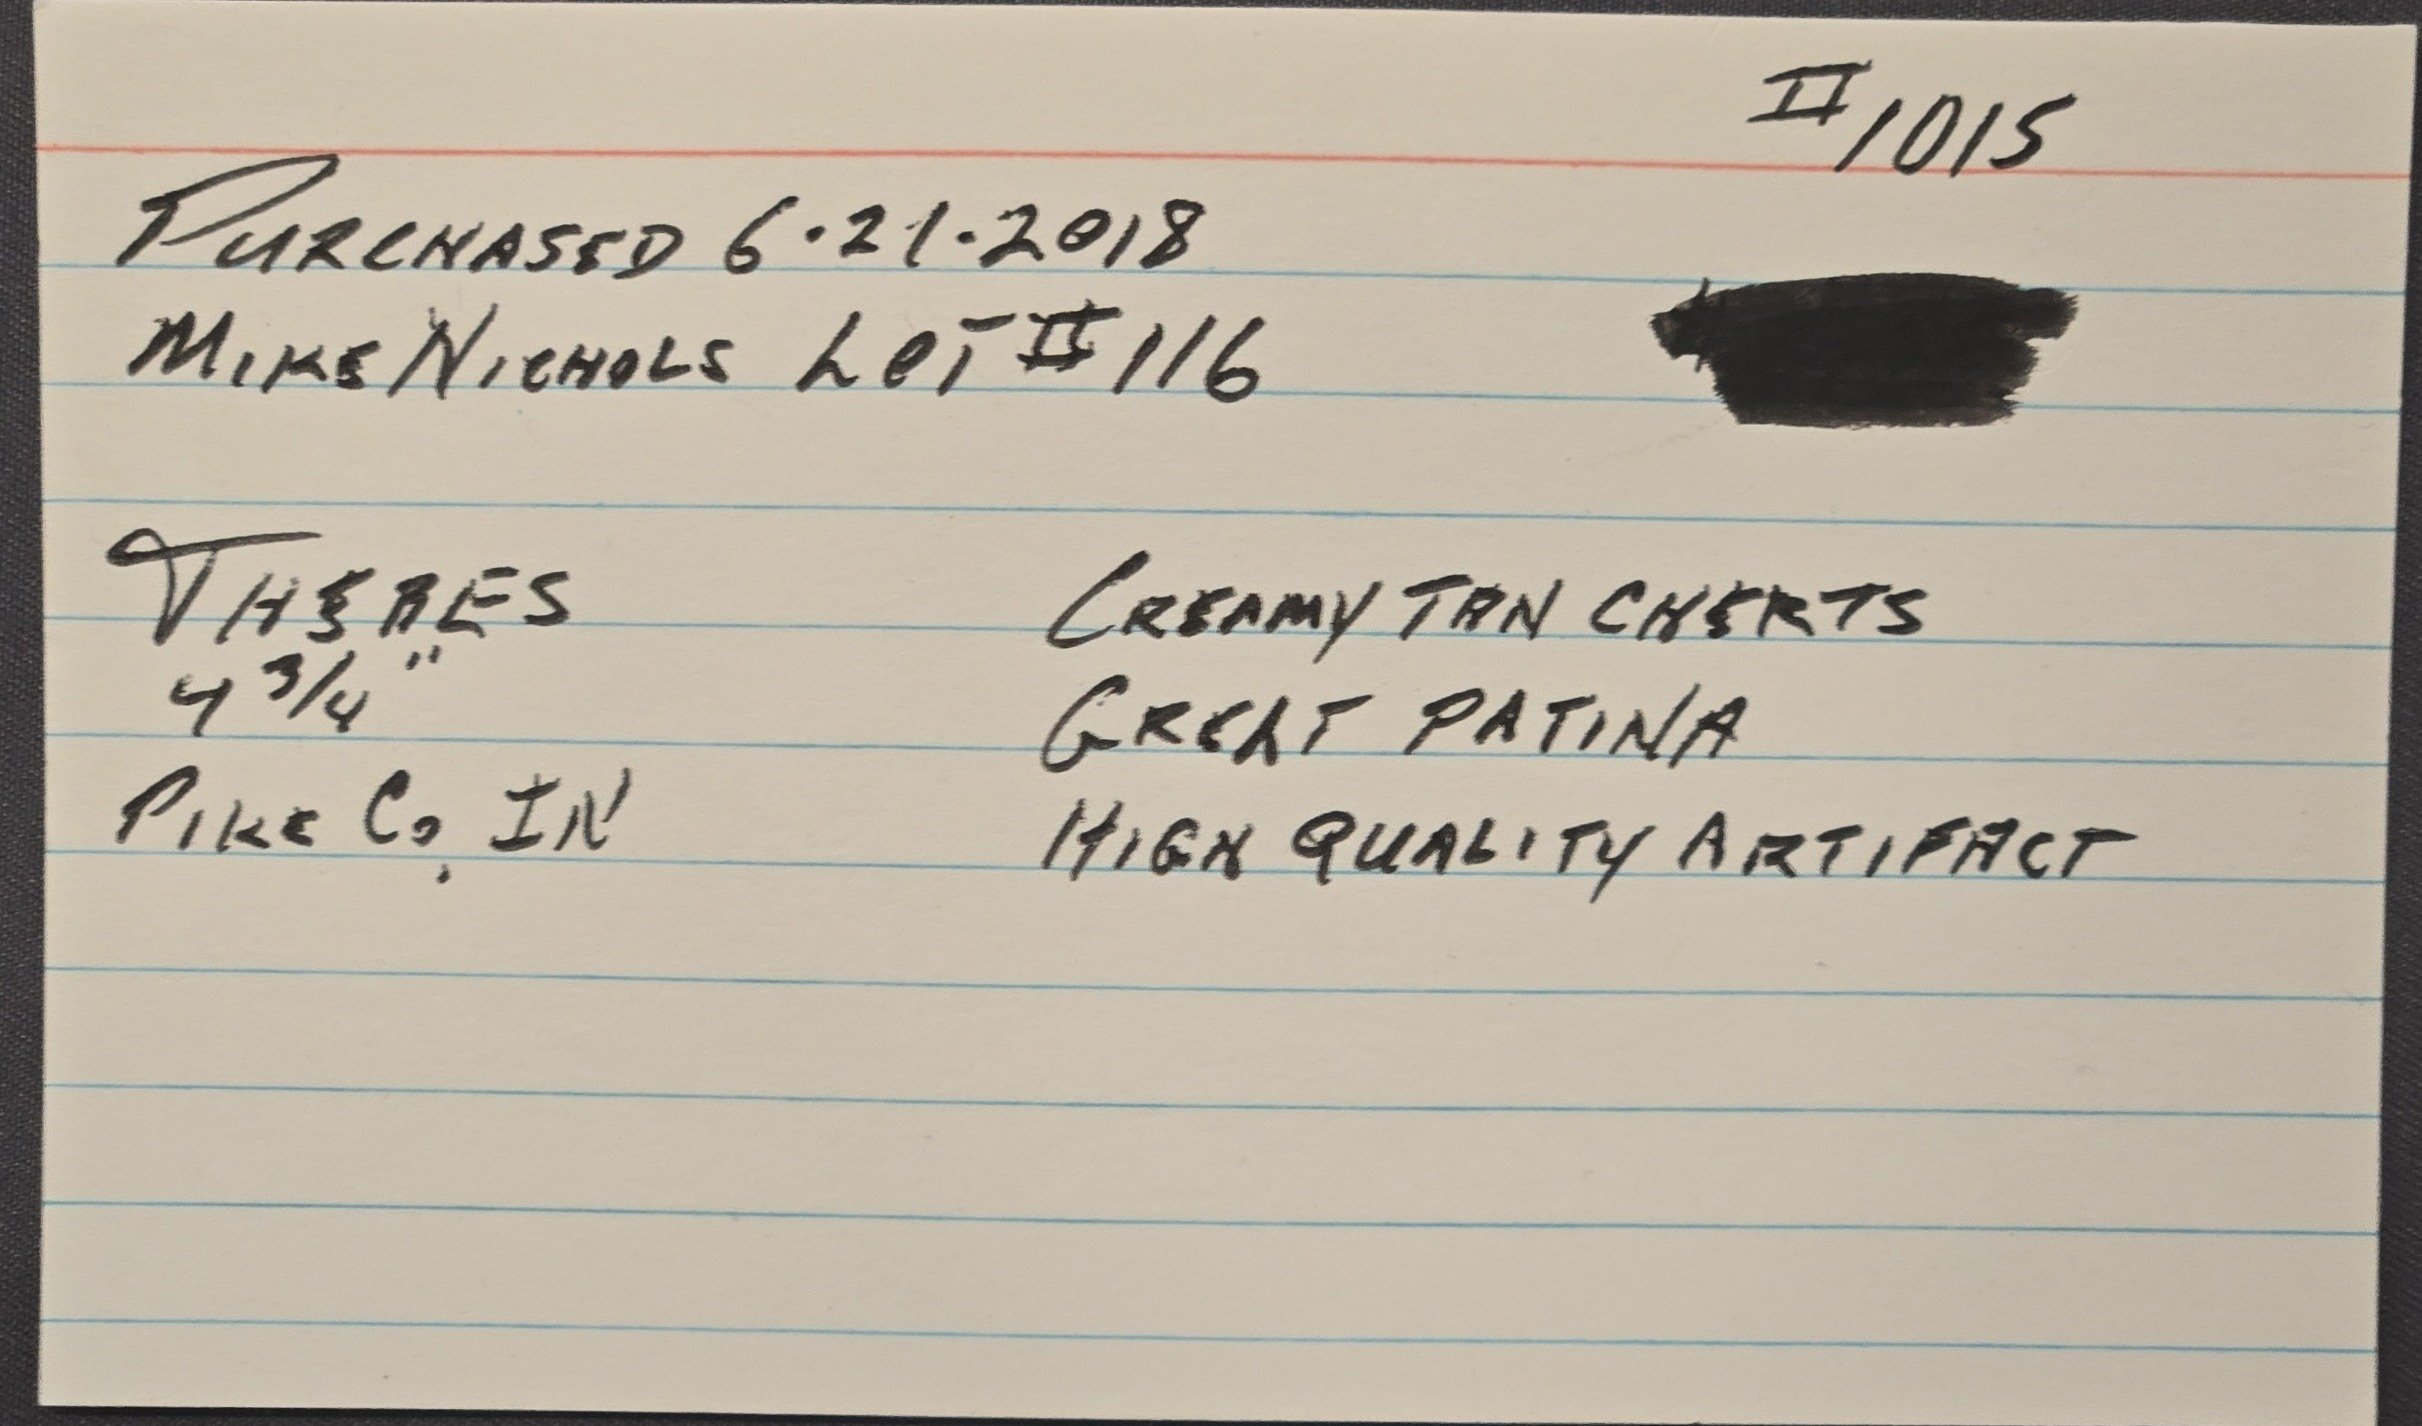 #1015
PURCHASED 6·21·2018
MIKE NICHOLS LOT #116
THEBES
4 3/4"
PIKE Co, IN
CREAMY TAN CHERTS
GREAT PATINA
HIGH QUALITY ARTIFACT